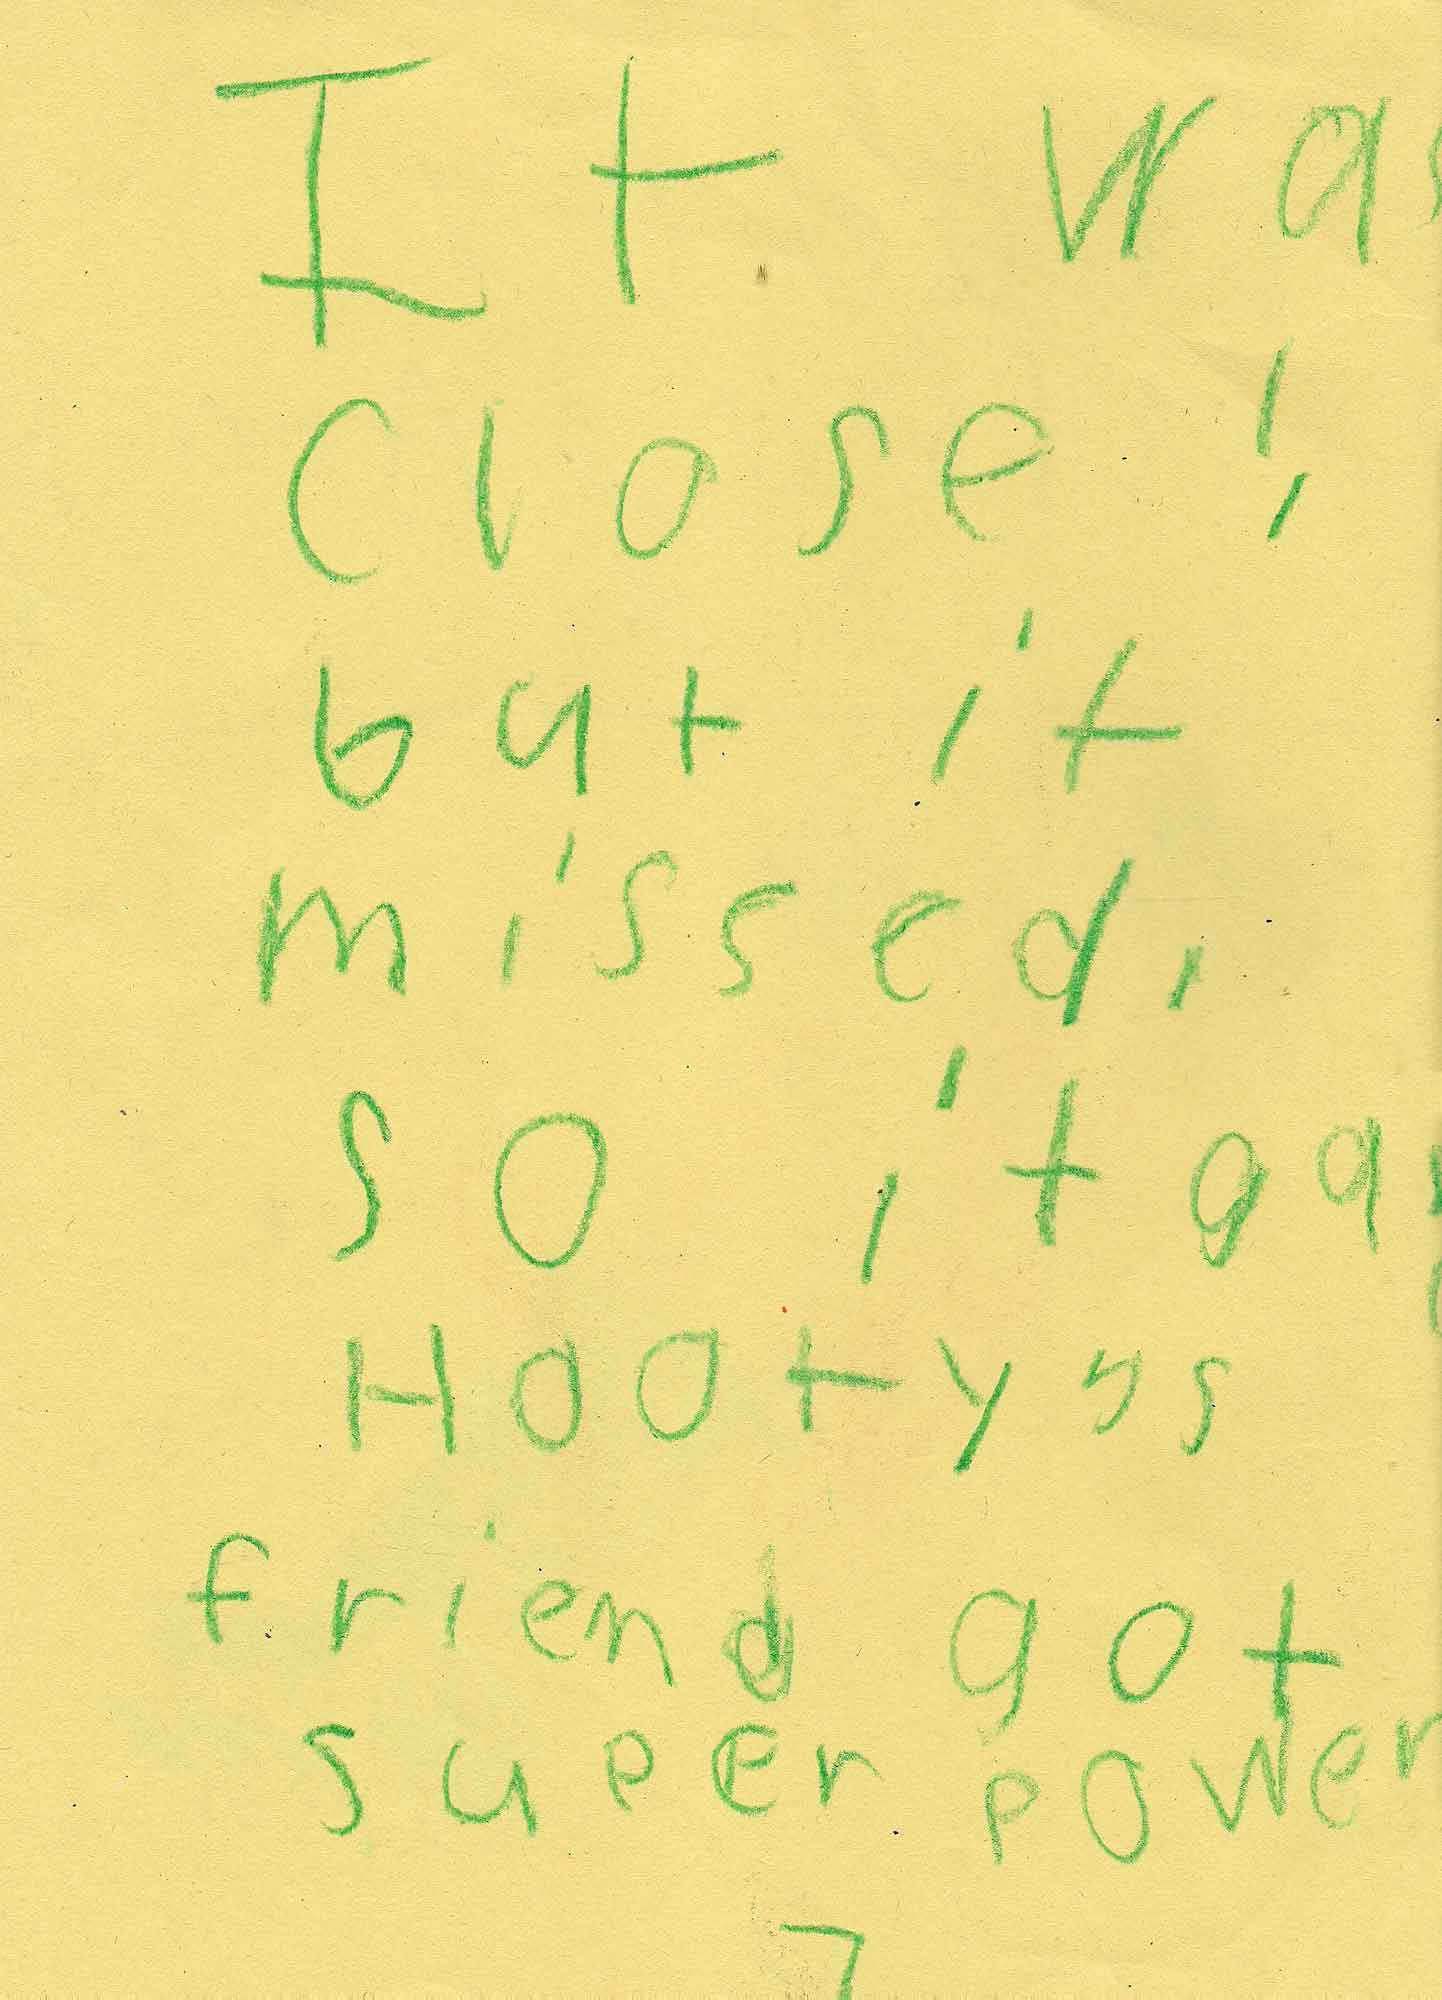 It was
close!
but it
missed.
so it
Hooty's
friend got
super power
7